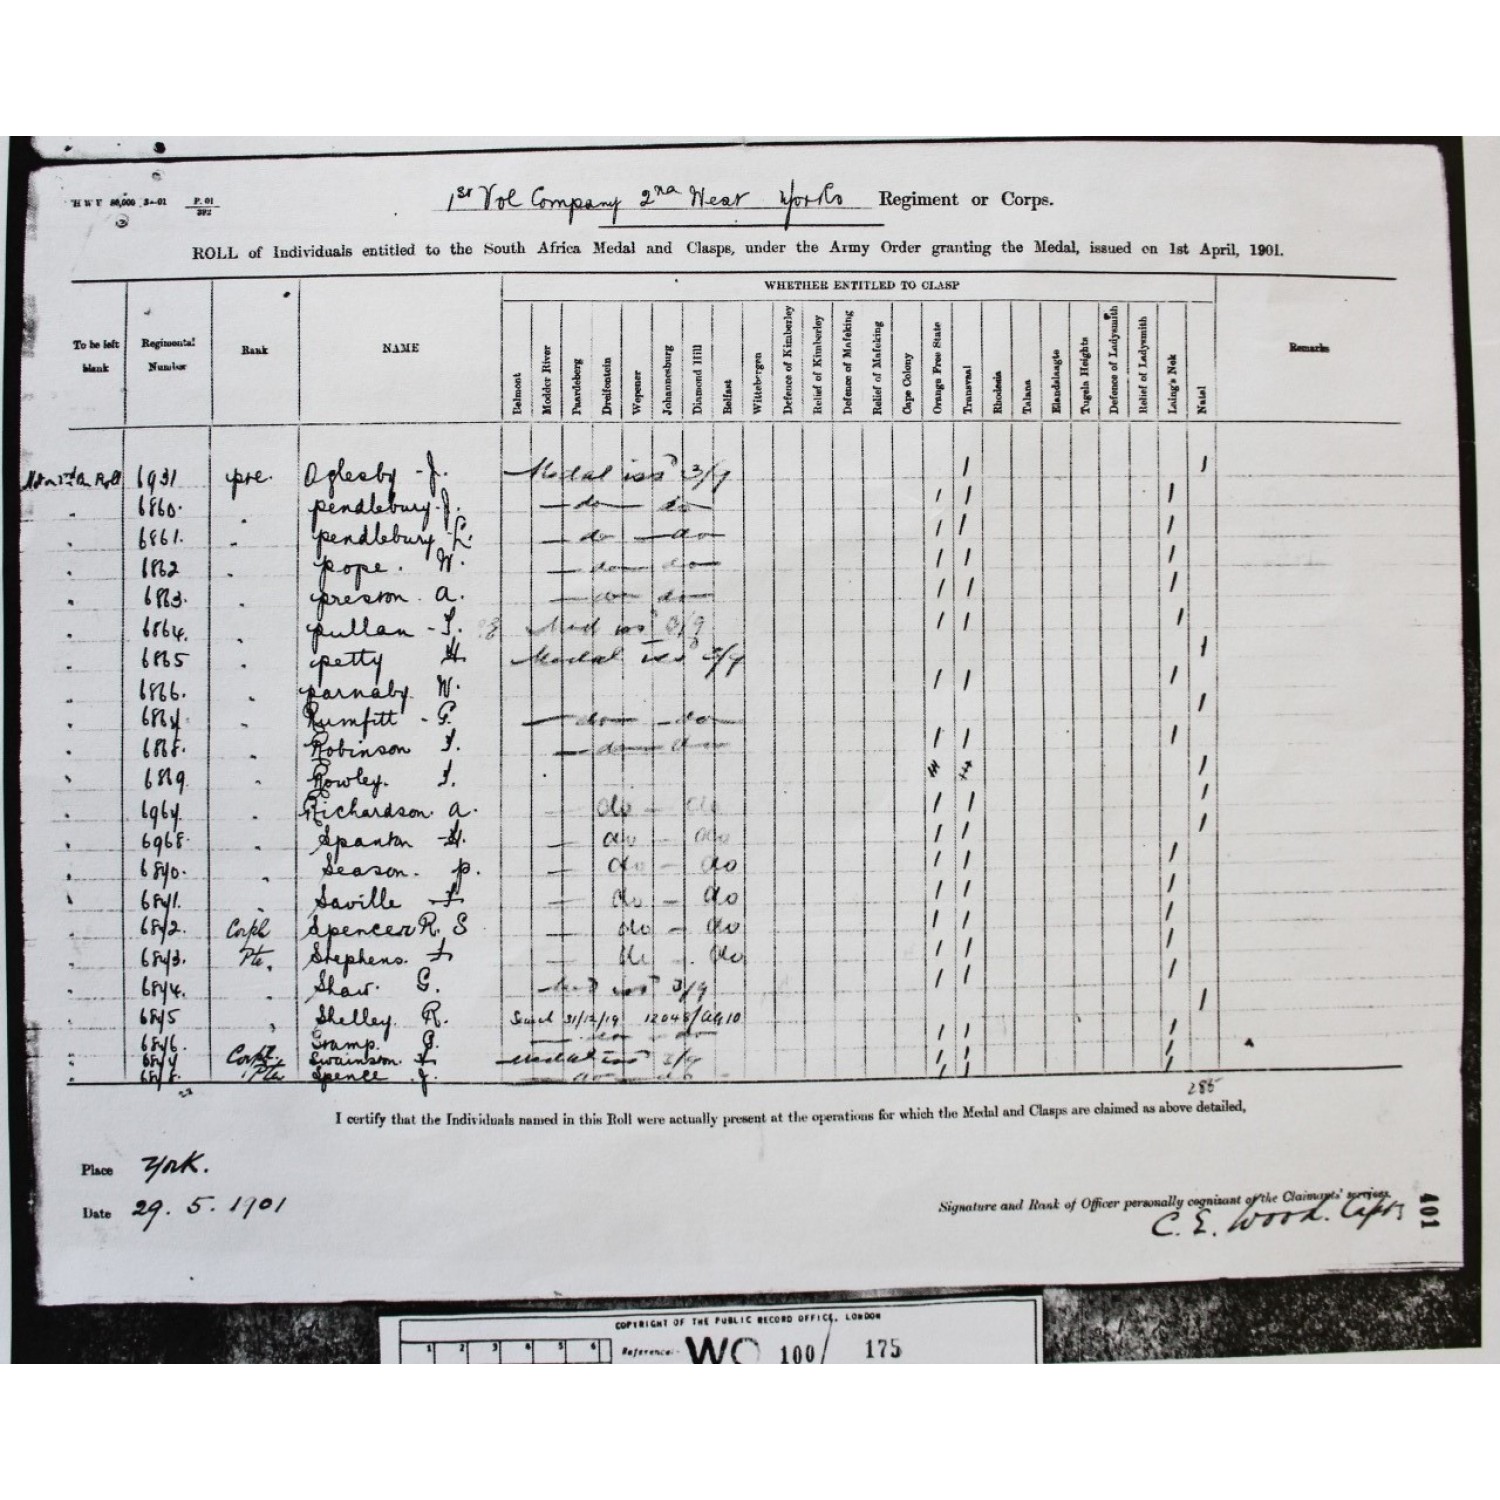 H W V 80,000 3-01 P. 01
1st Vol Company 2nd West Yorks Regiment or Corps.
ROLL of Individuals entitled to the South Africa Medal and Clasps, under the Army Order granting the Medal, issued on 1st April, 1901.
WHETHER ENTITLED TO CLASP
To be left blank Regimental Number Rank NAME Belmont Modder River Paardeberg Dreifontein Wepener Johannesburg Diamond Hill Belfast Wittebergen Defence of Kimberley Relief of Kimberley Defence of Mafeking Relief of Mafeking Cape Colony Orange Free State Transvaal Rhodesia Talana Elandslaagte Tugela Heights Defence of Ladysmith Relief of Ladysmith Laing's Nek Natal Remarks
6931 pte. Oglesby - J. Medal issd 3/9 / /
6860. " pendlebury. J. — do — do — / / /
6861. " pendlebury L. — do — do — / / /
6862 " pope. W. — do — do — / / /
6863. " preston. a. — do — do — / / /
6864. " pullan - Med iss 3/9 / / /
6865 " petty H. Medal issd 3/9 /
6866. " parnaby. W. / / /
" Rumfitt - G. — do — do — /
6868. " Robinson — do — do — / / /
6869 " Rowley. /
" Richardson. a. — do — do / / /
6968. " Spanton H. — do — do / / /
" Season. p. — do — do / / /
" Saville — do — do / / /
Corpl Spencer R. S — do — do / / /
Pte. Stephens. — do — do / / /
" Shaw. G. Med issd 3/9 / / /
" Shelley. R. 31/12/19 /
G. — do — do — / / /
Corpl. Swainson Medal iss 3/9 / / /
Pte Spence J. — do — do — / / /
285
I certify that the Individuals named in this Roll were actually present at the operations for which the Medal and Clasps are claimed as above detailed,
Place York.
Date 29. 5. 1901
Signature and Rank of Officer personally cognizant of the Claimants' services.
C. E. Wood. Capt
401
COPYRIGHT OF THE PUBLIC RECORD OFFICE, LONDON
1 2 3 4 5 6 Reference:- WO 100/ 175